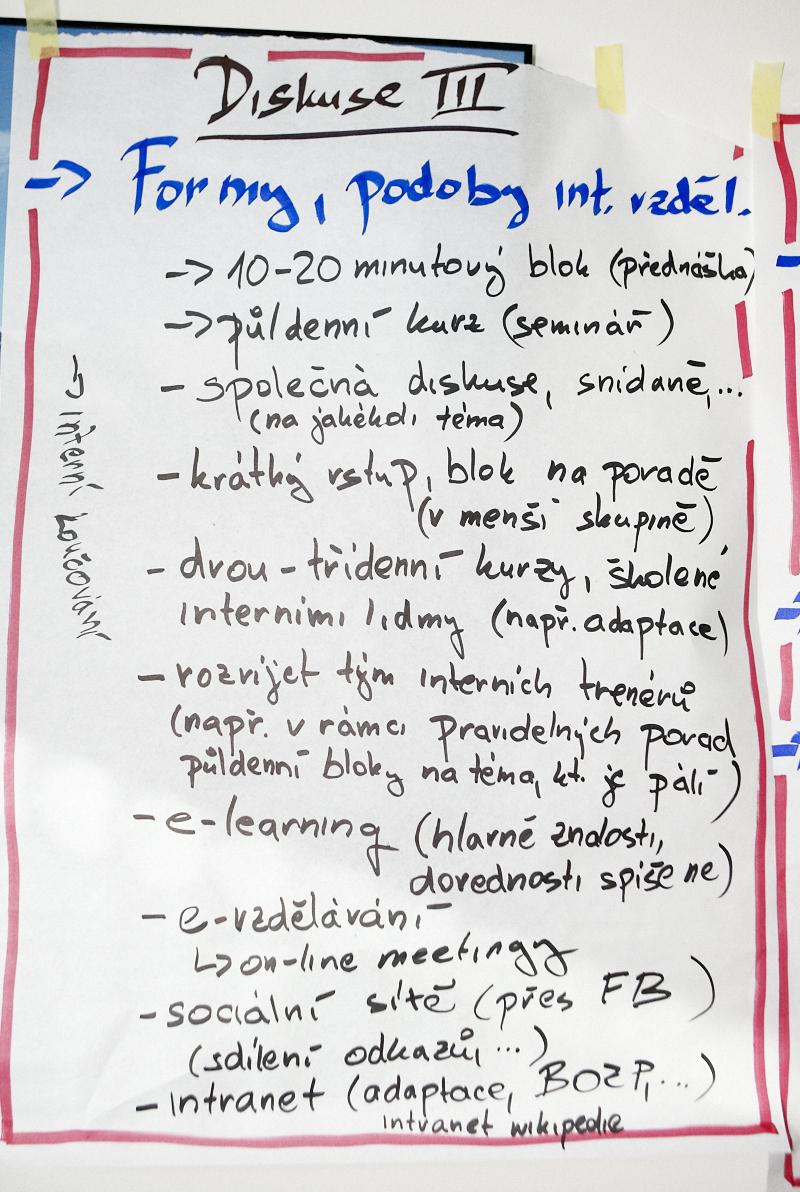 Diskuse III
-> Formy, podoby int. vzděl.
-> 10-20 minutový blok (přednáška)
-> půldenní kurz (seminář)
- společná diskuse, snídaně,...
(na jakékoli téma)
- krátký vstup, blok na poradě
(v menší skupině)
- dvou-třídenní kurzy, školené
interními lidmy (např. adaptace)
- rozvíjet tým interních trenérů
(např. v rámci pravidelných porad
půldenní bloky na téma, kt. je pálí)
- e-learning (hlavně znalosti,
dovednosti spíše ne)
- e-vzdělávání
↳ on-line meetingy
- sociální sítě (přes FB)
(sdílení odkazů, ...)
- intranet (adaptace, BOZP, ...)
intranet wikipedie
-> interní koučování